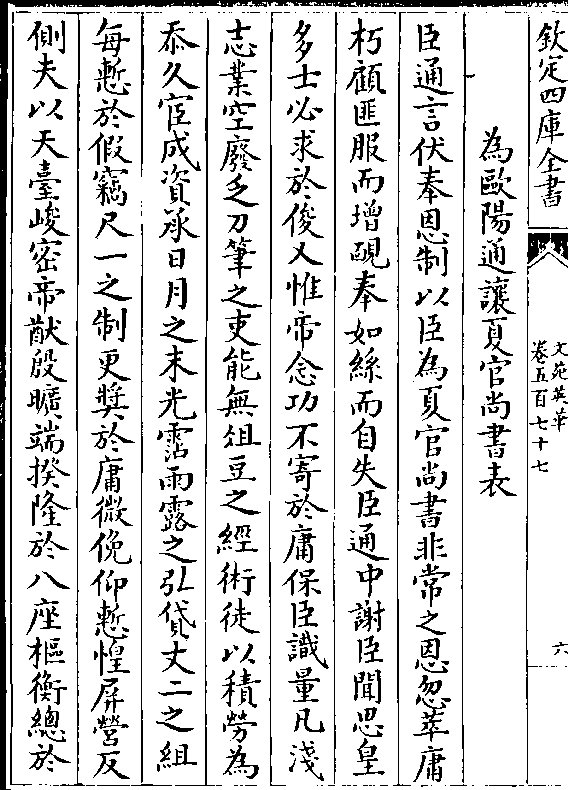 欽定四庫全書
文苑英華
卷五百七十七
六
為歐陽通讓夏官尚書表
臣通言伏奉恩制以臣為夏官尚書非常之恩忽萃庸
朽顧匪服而增靦奉如絲而自失臣通中謝臣聞思皇
多士必求於俊乂惟帝念功不寄於庸保臣識量凡淺
志業空廢乏刀筆之吏能無俎豆之經術徒以積勞為
忝久宦成資承日月之末光霑雨露之弘貸丈二之組
每慙於假竊尺一之制更奬於庸微俛仰慙惶屏營反
側夫以天臺峻密帝猷殷曠端揆隆於八座樞衡總於